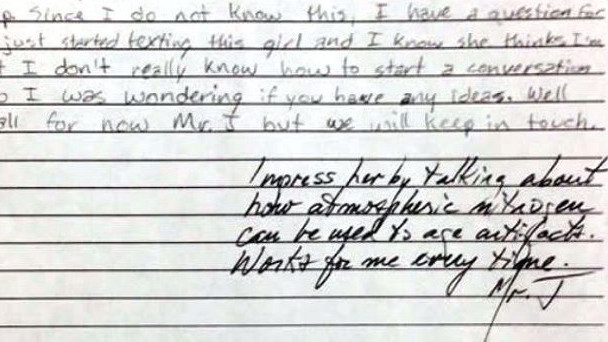 p. Since I do not know this, I have a question for
just started texting this girl and I know she thinks I'm
I don't really know how to start a conversation
I was wondering if you have any ideas. Well
all for now Mr. J but we will keep in touch.
Impress her by talking about
how atmospheric nitrogen
can be used to age artifacts.
Works for me every time.
Mr. J